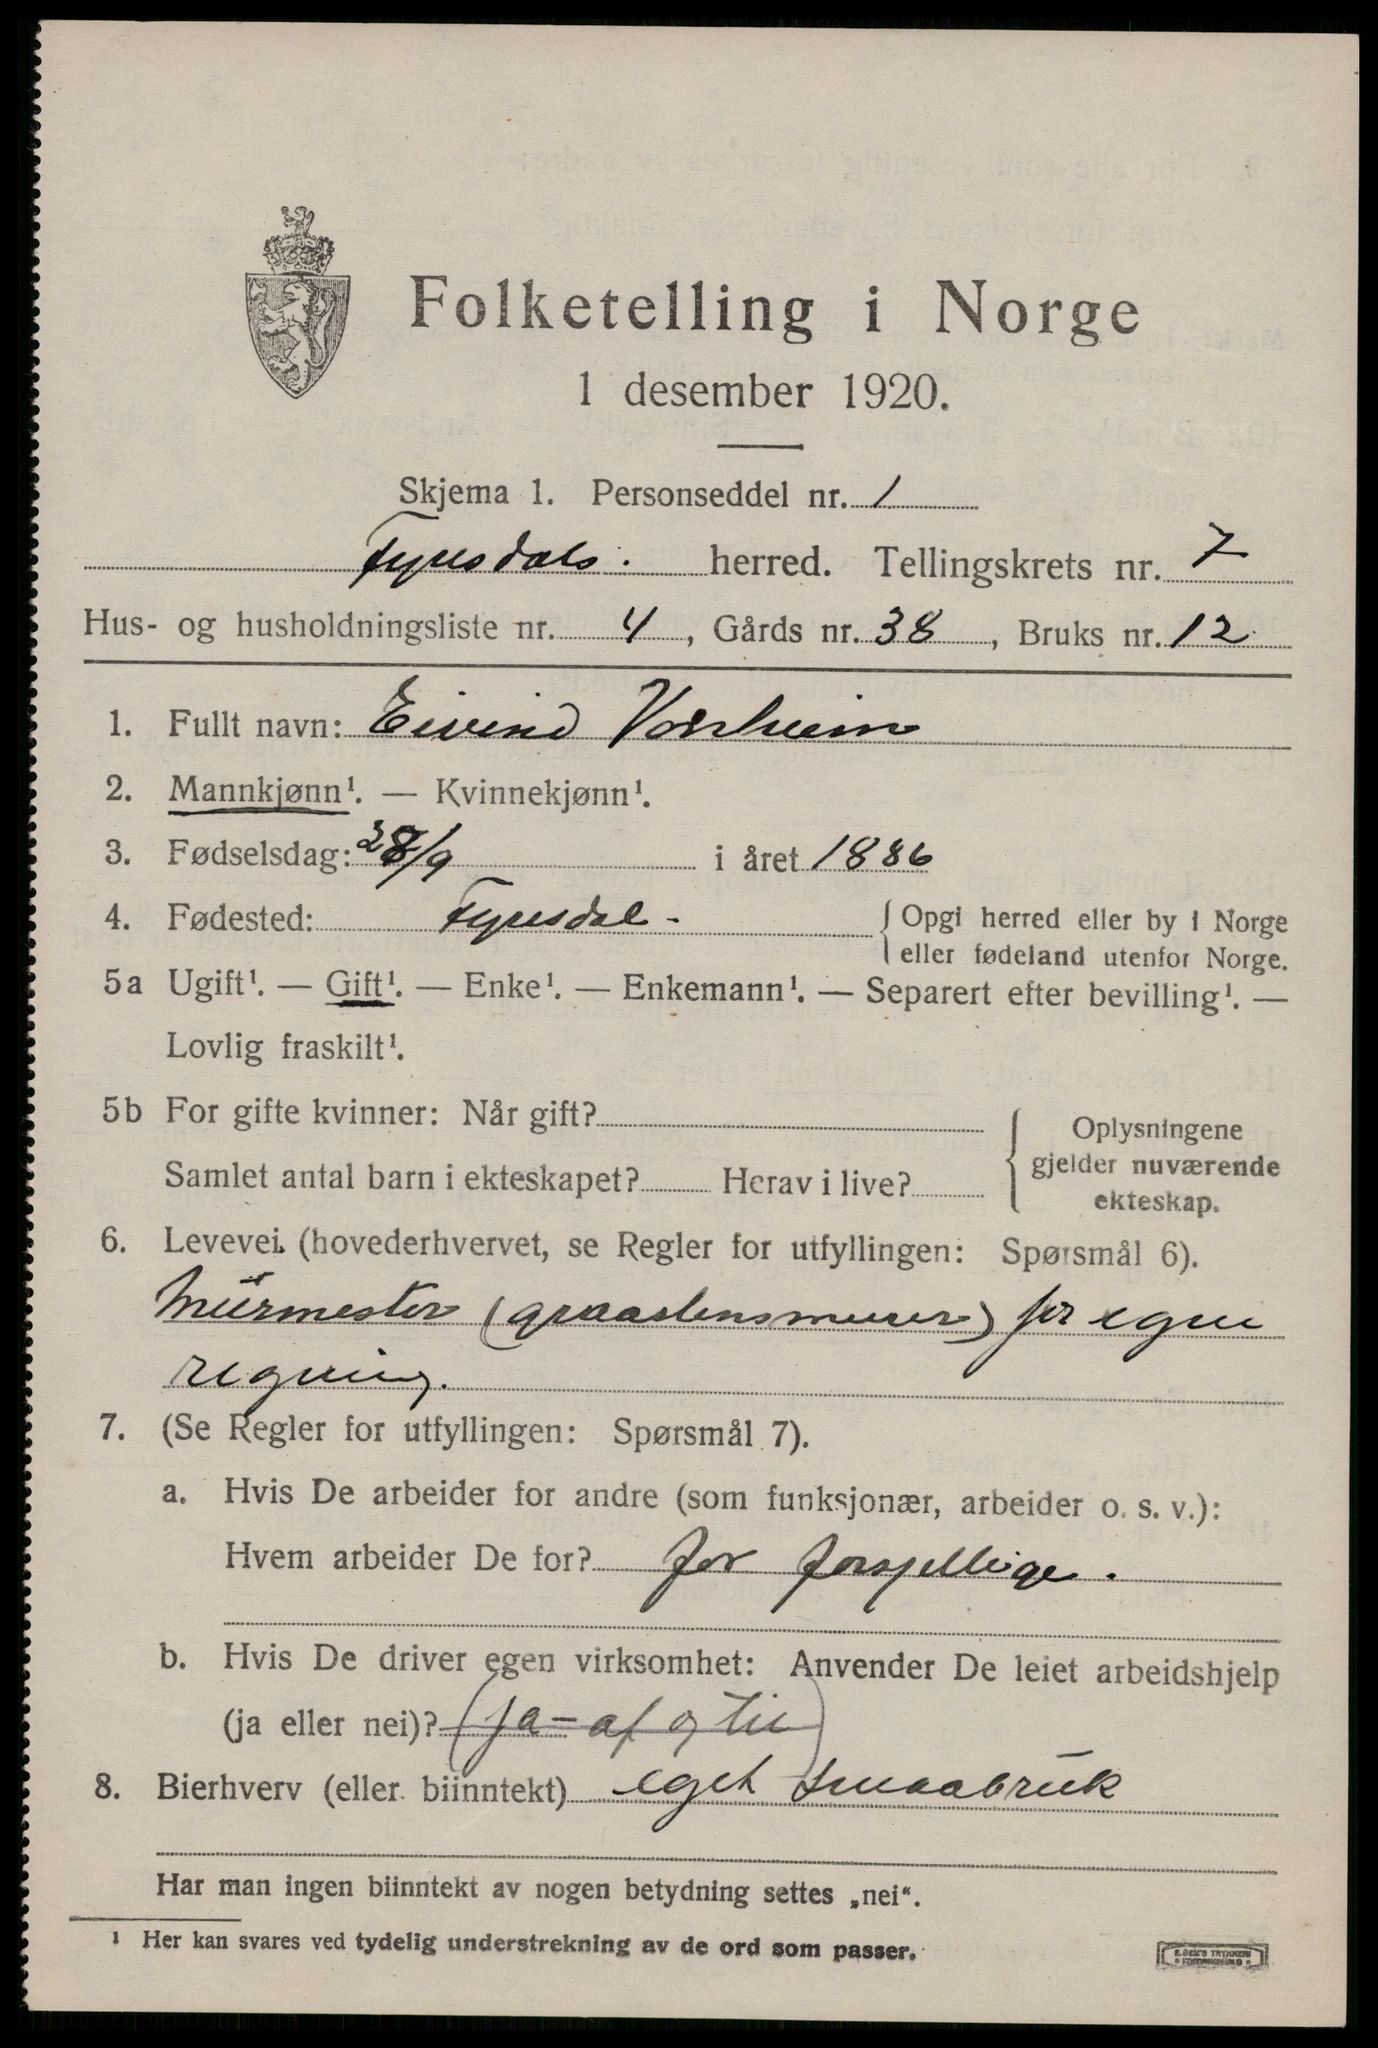 Folketelling i Norge
1 desember 1920.
Skjema 1. Personseddel nr. 1
Fyresdals. herred. Tellingskrets nr. 7
Hus- og husholdningsliste nr. 4, Gårds nr. 38, Bruks nr. 12
1. Fullt navn: Eivind
2. Mannkjønn¹. — Kvinnekjønn¹.
3. Fødselsdag: 28/9 i året 1886
4. Fødested: Fyresdal - { Opgi herred eller by i Norge
eller fødeland utenfor Norge.
5a Ugift¹. — Gift¹. — Enke¹. — Enkemann¹. — Separert efter bevilling¹. —
Lovlig fraskilt¹.
5b For gifte kvinner: Når gift?
Samlet antal barn i ekteskapet? Herav i live?
{ Oplysningene
gjelder nuværende
ekteskap.
6. Levevei. (hovederhvervet, se Regler for utfyllingen: Spørsmål 6).
Murmester (graastensmurer) for egen
regning.
7. (Se Regler for utfyllingen: Spørsmål 7).
a. Hvis De arbeider for andre (som funksjonær, arbeider o. s. v.):
Hvem arbeider De for? for forsjellige.
b. Hvis De driver egen virksomhet: Anvender De leiet arbeidshjelp
(ja eller nei)? (ja - af og til)
8. Bierhverv (eller biinntekt) eget smaabruk
Har man ingen biinntekt av nogen betydning settes „nei“.
¹ Her kan svares ved tydelig understrekning av de ord som passer.